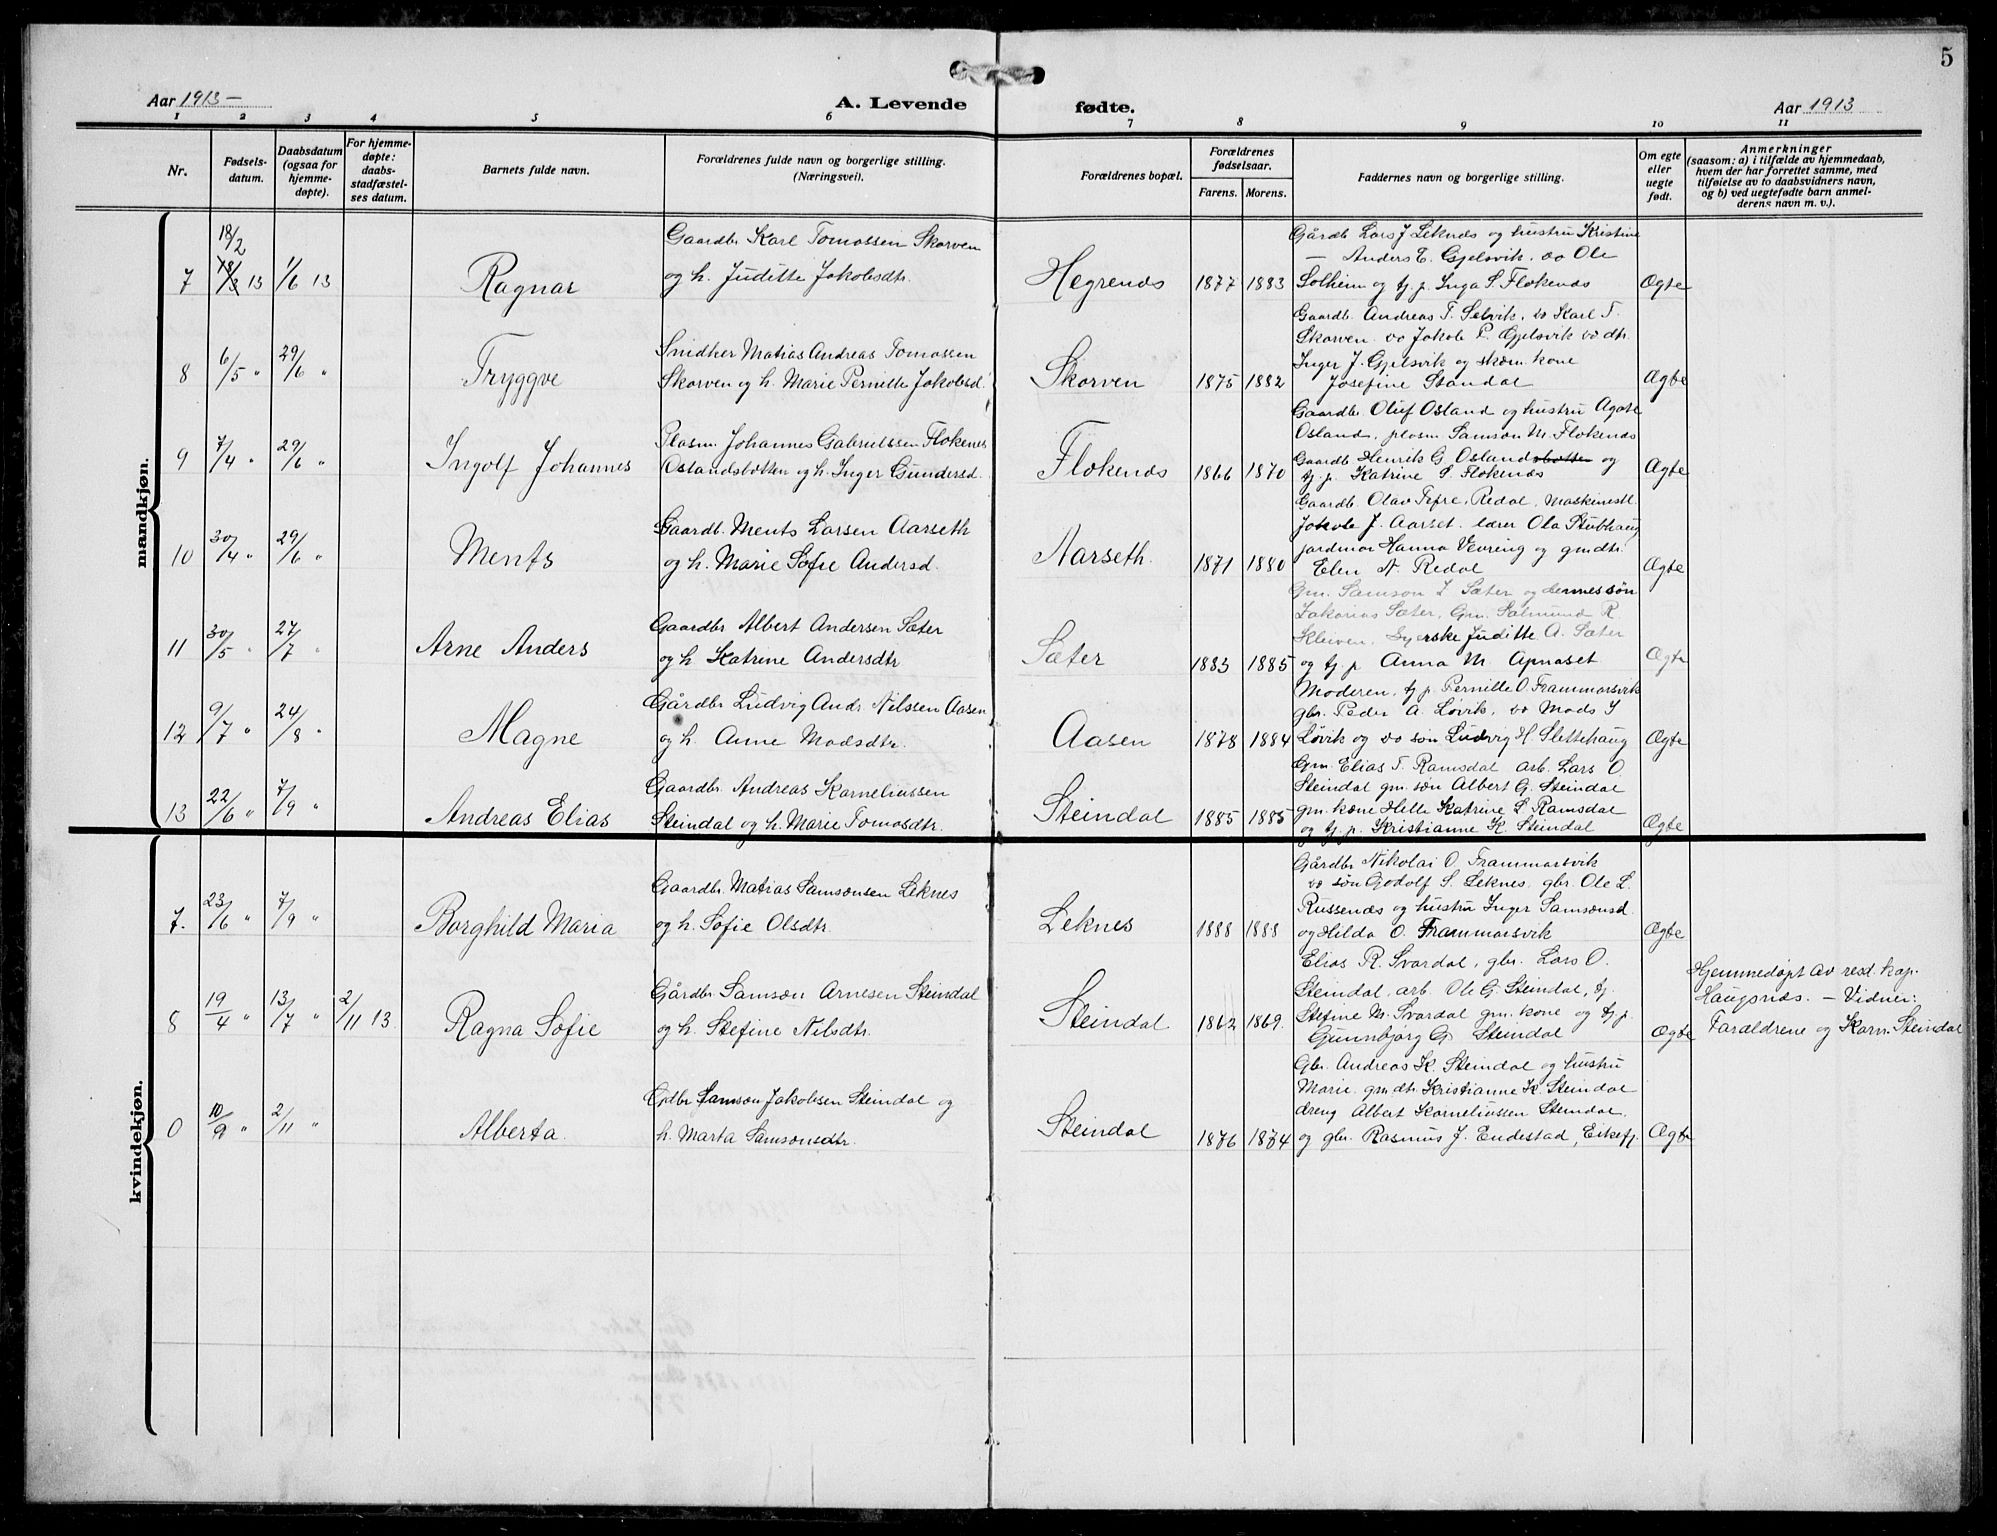 5
Aar 1913 –
A. Levende fødte.
Aar 1913
1 2 3 4 5 6 7 8 9 10 11
Nr.
Fødsels-
datum.
Daabsdatum
(ogsaa for
hjemme-
døpte).
For hjemme-
døpte:
daabs-
stadfæstel-
ses datum.
Barnets fulde navn.
Forældrenes fulde navn og borgerlige stilling.
(Næringsvei).
Forældrenes bopæl.
Forældrenes
fødselsaar.
Farens. Morens.
Faddernes navn og borgerlige stilling.
Om egte
eller
uegte
født.
Anmerkninger
(saasom: a) i tilfælde av hjemmedaab,
hvem der har forrettet samme, med
tilføielse av to daabsvidners navn,
og b) ved uegtefødte barn anmel-
derens navn m. v.).
mandkjøn.
18/2
7 18/3 13 1/6 13
Ragnar
Gaardbr Karl Tomassen Skorven
og h. Juditte Jakobsdtr.
Hegrenæs 1877 1883
Gårdb Lars J Leknæs og hustru Kristine
– Anders E. Gjelsvik. do Ole
Solheim og tj. p. Inga S. Flokenæs
Ægte
8 6/5 " 29/6 "
Tryggve
Snidker Matias Andreas Tomassen
Skorven og h. Marie Pernille Jakobsd.
Skorven 1875 1882
Gaardb. Andreas T. Selvik, do Karl T.
Skorven. do Jakob P. Gjelsvik do dtr.
Inger J. Gjelsvik og skom. kone
Josefine Standal
Ægte
9 7/4 " 29/6 "
Ingolf Johannes
Plasm. Johannes Gabrielssen Flokenes
Oslandsbotten og h. Inger Gundersd.
Flokenæs 1866 1870
Gaardbr. Oluf Osland og hustru Agate
Osland, plasm. Samson M. Flokenæs
Gaardb Henrik G. Oslandsbotten og
tj. p. Katrine S. Flokenæs
Ægte
10 30/4 " 29/6 "
Ments
Gaardb. Ments Larsen Aarseth
og h. Marie Sofie Andersd.
Aarseth. 1871 1880
Gaardb. Olav Tefre, Redal, Maskinestl.
Jakob J. Aarset. lærer Ola Stubhaug
jordmor Hanna Vevring og gmdtr.
Elen A. Redal
Ægte
11 30/5 27/7 "
Arne Anders
Gaardbr Albert Andersen Sæter
og h Katrine Andersdtr
Sæter 1883 1885
Gm. Samson I Sæter og dennes søn
Zakarias Sæter, Gm. Salmund R
Kleiven. Syerske Juditte A. Sæter
og tj. p Anna M. Apnaset
Ægte
12 9/7 " 24/8 "
Magne
Gårdbr Ludvig Andr. Nilssen Aasen
og h. Anne Madsdtr.
Aasen 1878 1884
Moderen, tj p. Pernille O. Frammarsvik
gbr. Peder A. Løvik, do Mads I
Løvik og do søn Ludvig H. Slettehaug
Ægte
13 22/6 " 7/9 "
Andreas Elias
Gaardbr. Andreas Korneliussen
Steindal og h. Marie Tomasdtr.
Steindal 1885 1885
Gm. Elias T. Ramsdal arb. Lars O.
Steindal gm. søn Albert G. Steindal
gm. kone Helle Katrine L. Ramsdal
og tj. p. Kristianne K. Steindal
Ægte
kvindekjøn.
7. 23/6 " 7/9 "
Borghild Maria
Gaardbr. Matias Samsonsen Leknes
og h. Sofie Olsdtr.
Leknes 1888 1888
Gårdbr Nikolai O. Frammarsvik
do søn Godolf S. Leknes, gbr. Ole L.
Russenæs og hustru Inger Samsonsd.
og Hilda O. Frammarsvik
Ægte
8 19/4 " 13/7 " 2/11 13
Ragna Sofie
Gårdbr. Samson Arnesen Steindal
og h. Stefine Nilsdtr.
Steindal 1862 1869.
Elias R. Svardal, gbr. Lars O.
Steindal, arb. Ole G. Steindal, tj.
Stefine M. Svardal gm. kone og tj. p
Gunnbjørg G. Steindal
Ægte
Hjemmedøpt av res. kap.
Haugsnæs. – Vidner:
Forældrene og Korn. Steindal
0 10/9 " 2/11 "
Alberta.
Gdbr Samson Jakobsen Steindal og
h. Marta Samsonsdtr.
Steindal 1876 1874
Gbr. Andreas K. Steindal og hustru
Marie, gm. dtr. Kristianne K. Steindal
dreng Albert Korneliussen Steindal,
og gbr. Rasmus J. Endestad, Eikefj.
Ægte